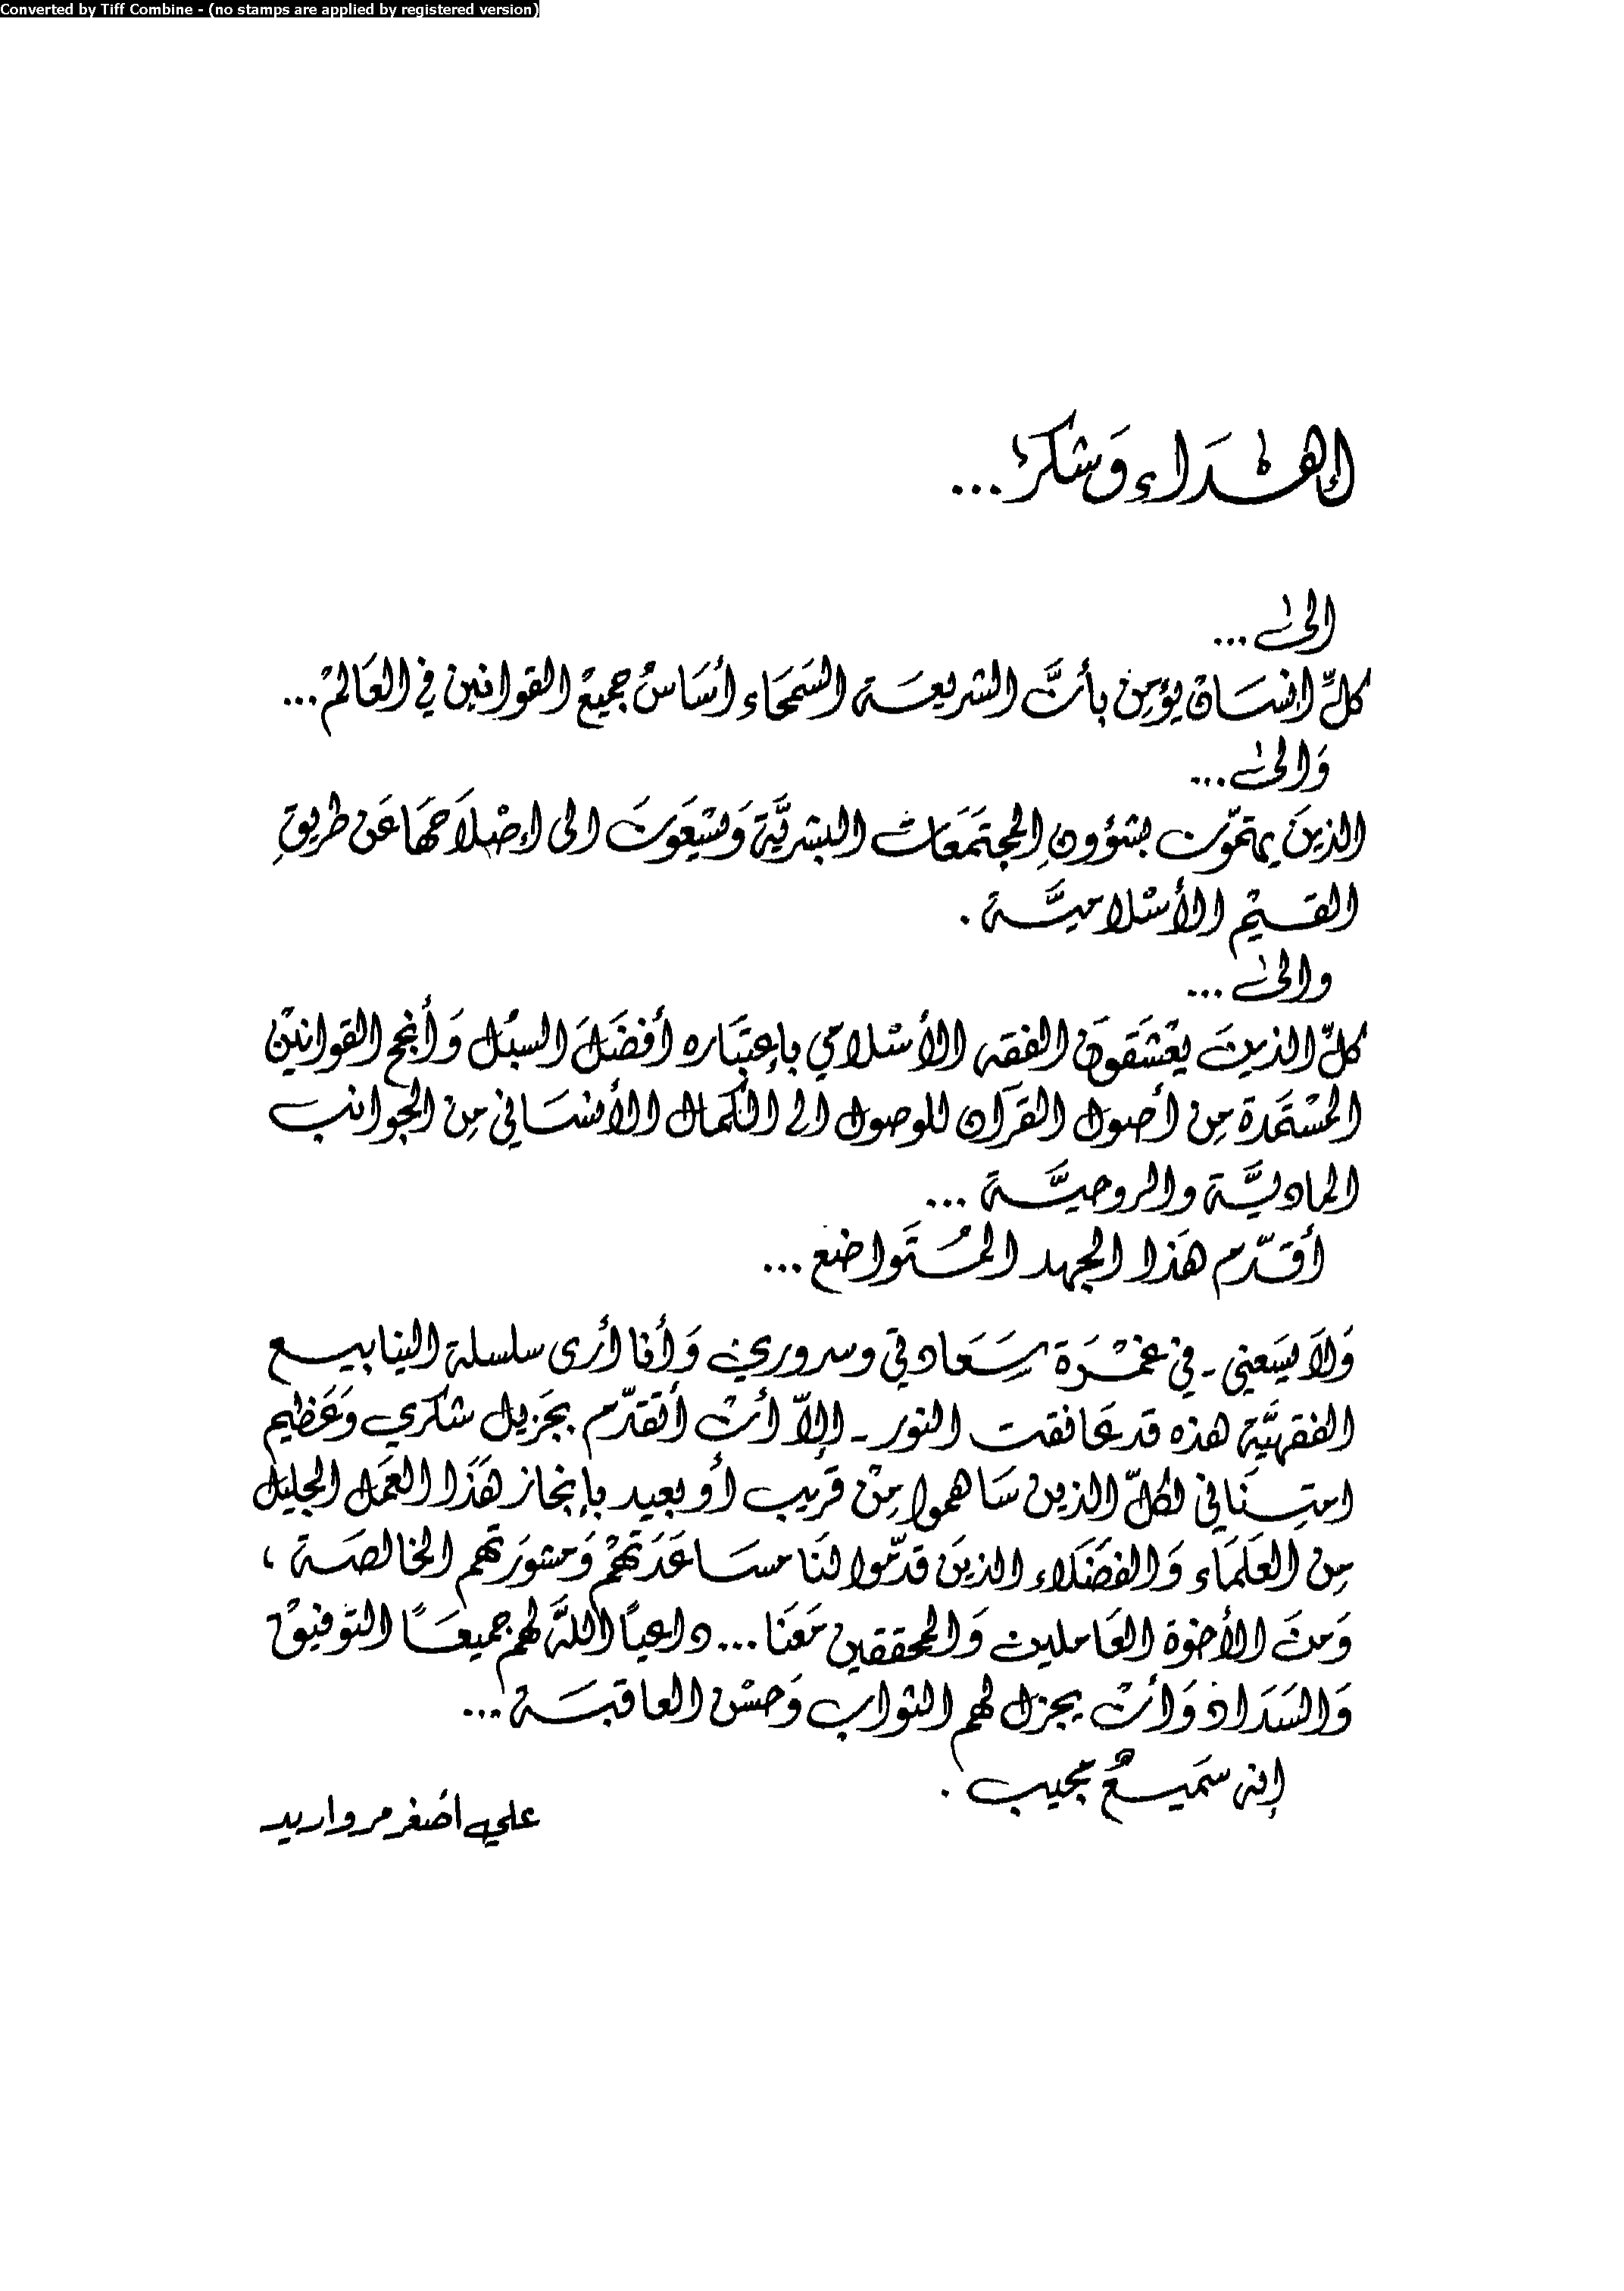 Converted by Tiff Combine - (no stamps are applied by registered version)
إهداء وشكر...
الى...
كلّ انسان يؤمن بأنَّ الشريعة السَمحاء أسَاسُ جميع القوانين في العَالم...
وَالى...
الذينَ يهتمّون بشؤونِ المجتمَعَات البشريَّة وَيسْعَونَ الى إصْلاَحهَا عَن طريقِ
القيم الأسْلاميَّة .
والى...
كلّ الذينَ يعْشَقونَ الفقه الأسْلامي بإعتبَاره أفضَلَ السبُل وَأنجح القوانين
المسْتمَدة مِن أصول القرآن للوصول الى الكمال الأنسَاني مِن الجوانب
الماديَّة والروحيَّة ...
أقدّم هَذا الجهد المُتَواضع...
وَلاَ يسَعني - في غمْرَة سَعَادتي وسروري وَأنا أرى سلسلة الينابيع
الفقهيَّة هذه قد عَانقت النور - إلاّ أنْ أتقدّم بجَزيل شكري وَعَظيم
امتِنَاني لكلّ الذين سَاهموا مِنْ قريب أو بعيد بإنجاز هَذَا العَمَل الجليل
مِن العلَمَاء وَالفضَلاء الذينَ قدّموا لنَا مسَاعَدَتهمْ وَمشورَتهم الخالصَة ،
وَمنَ الأخوة العَاملين وَالمحققين مَعَنا... داعياً اللَّهَ لهم جميعاً التوفيق
وَالسَدَاد وَأنْ يجزل لهم الثواب وَحسْن العاقبَة...
إنه سَميعٌ مجيب .
علي أصْغر مرواريد